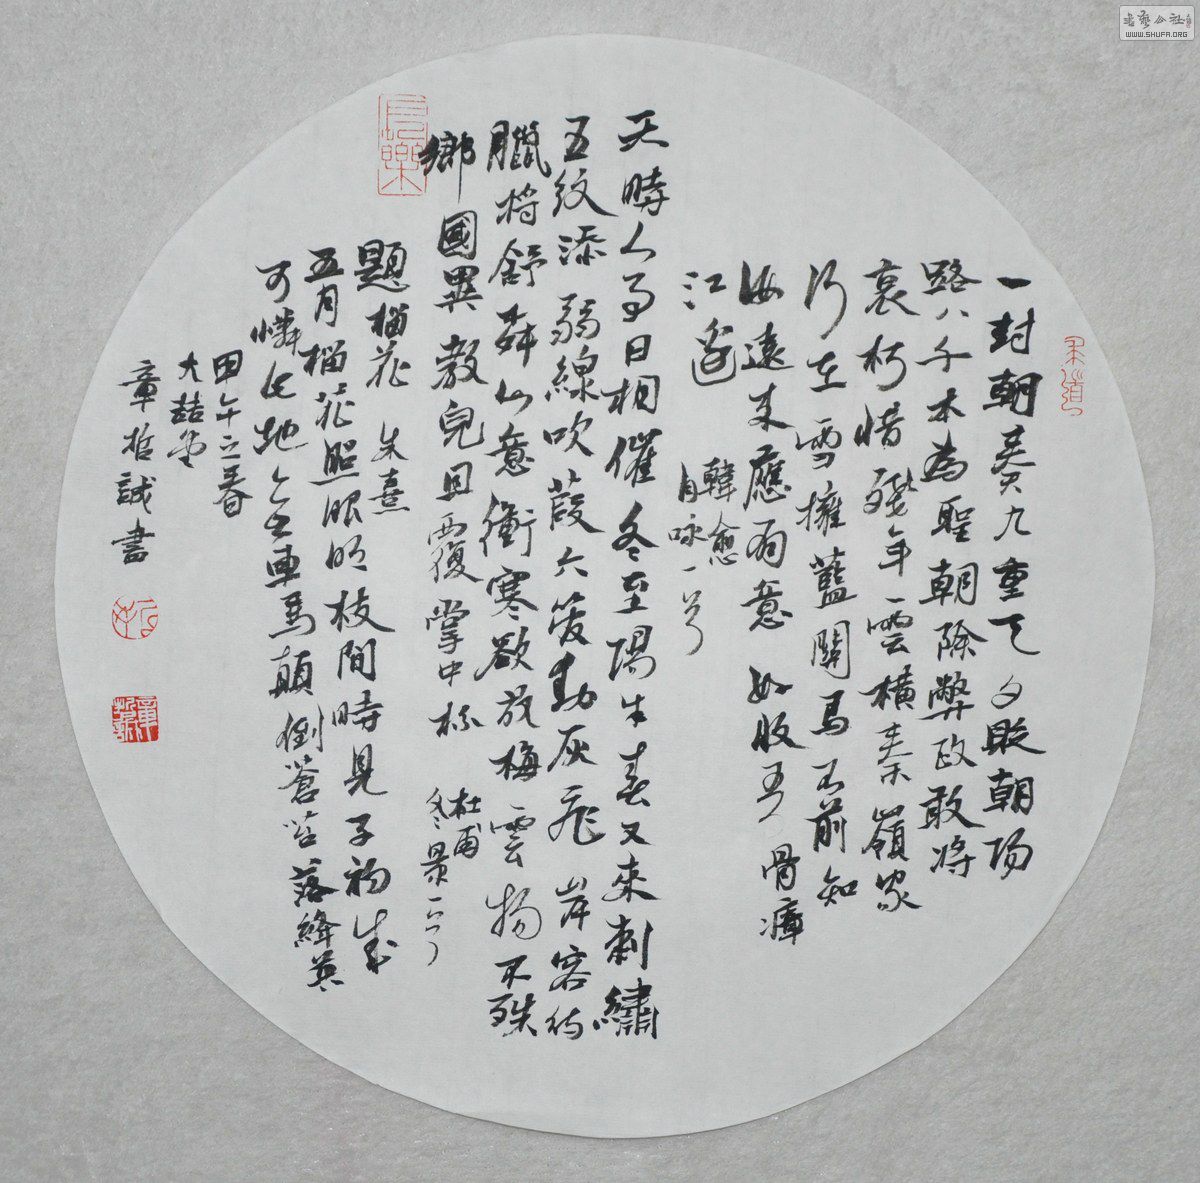 一封朝奏九重天夕貶朝陽
路八千本為聖朝除弊政敢將
衰朽惜殘年雲橫秦嶺家
何在雪擁藍關馬不前知
汝遠來應有意好收吾骨瘴
江邊
韓愈
自詠一首
天時人事日相催冬至陽生春又來刺繡
五紋添弱線吹葭六管動灰飛岸容待
臘將舒山意衝寒欲放梅雲物不殊
鄉國異教兒且覆掌中杯
杜甫
冬景一首
長樂
題榴花 朱熹
五月榴花照眼明枝間時見子初成
可憐此地無車馬顛倒蒼苔落絳英
甲午之春
大喆堂
章哲誠書
WWW.SHUFA.ORG